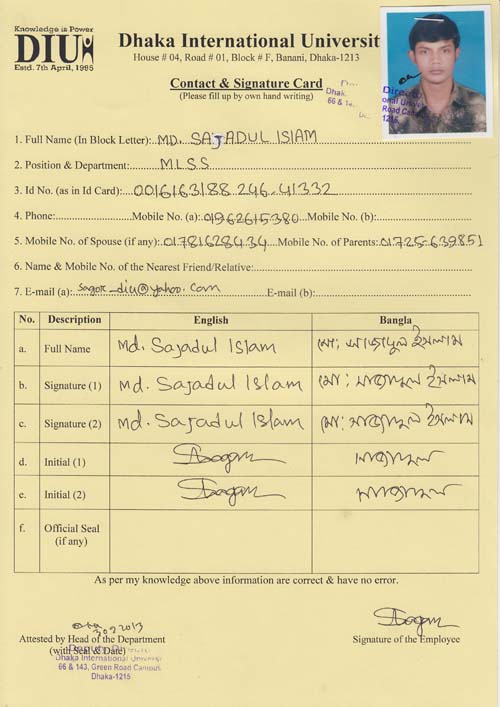 Knowledge is Power
DIU
Estd. 7th April, 1995
Dhaka International Universit
House # 04, Road # 01, Block # F, Banani, Dhaka-1213
Contact & Signature Card
(Please fill up by own hand writing)
Dhak
66 & 14
Dire
onal Univer
Road Campus
1215
1. Full Name (In Block Letter): MD. SAJADUL ISLAM
2. Position & Department: M.L.S.S
3. Id No. (as in Id Card): 0016163188 246-41332
4. Phone: Mobile No. (a): 01962615380 Mobile No. (b):
5. Mobile No. of Spouse (if any): 01781628434 Mobile No. of Parents: 01725-639851
6. Name & Mobile No. of the Nearest Friend/Relative:
7. E-mail (a): sagor_diu@yahoo.com E-mail (b):
No. Description English Bangla
a. Full Name Md. Sajadul Islam মো: সাজাদুল ইসলাম
b. Signature (1) Md. Sajadul Islam মো: সাজাদুল ইসলাম
c. Signature (2) Md. Sajadul Islam মো: সাজাদুল ইসলাম
d. Initial (1) Sagor সাজাদুল
e. Initial (2) Sagor সাজাদুল
f. Official Seal (if any)
As per my knowledge above information are correct & have no error.
Sagor
Attested by Head of the Department
(with Seal & Date)
Signature of the Employee
Dhaka International Universi
66 & 143, Green Road Campus
Dhaka-1215